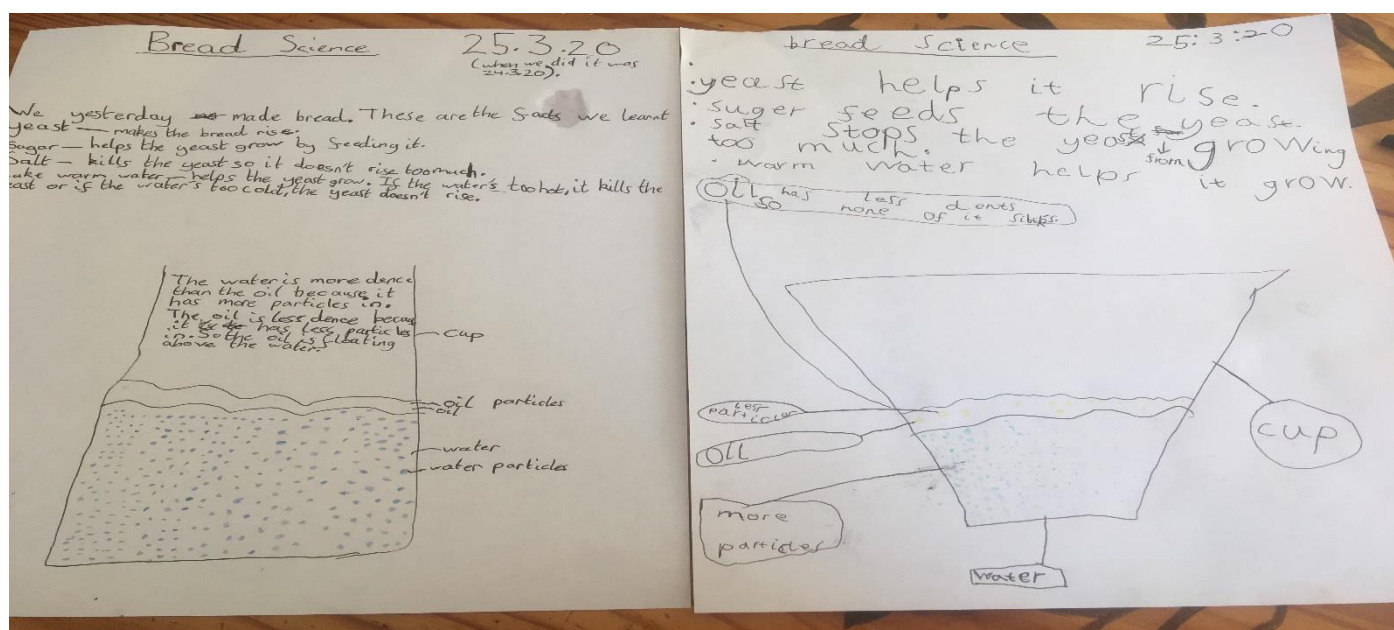 Bread Science
25.3.20
(when we did it was
24.3.20).
We yesterday made bread. These are the facts we learnt
yeast — makes the bread rise.
Sugar — helps the yeast grow by feeding it.
Salt — kills the yeast so it doesn't rise too much.
warm water — helps the yeast grow. If the water's too hot, it kills the
or if the water's too cold, the yeast doesn't rise.
The water is more dence
than the oil because it
has more particles in.
The oil is less dence becau
it has less particles
in. So the oil is floating
above the water.
cup
oil particles
oil
water
water particles
bread Science
25:3:20
· yeast helps it rise.
· suger feeds the yeast.
· salt stops the yeast from growing
too much.
· warm water helps it grow.
OIL has less dents
so none of it sinks.
less
particles
OIL
more
particles
water
cup